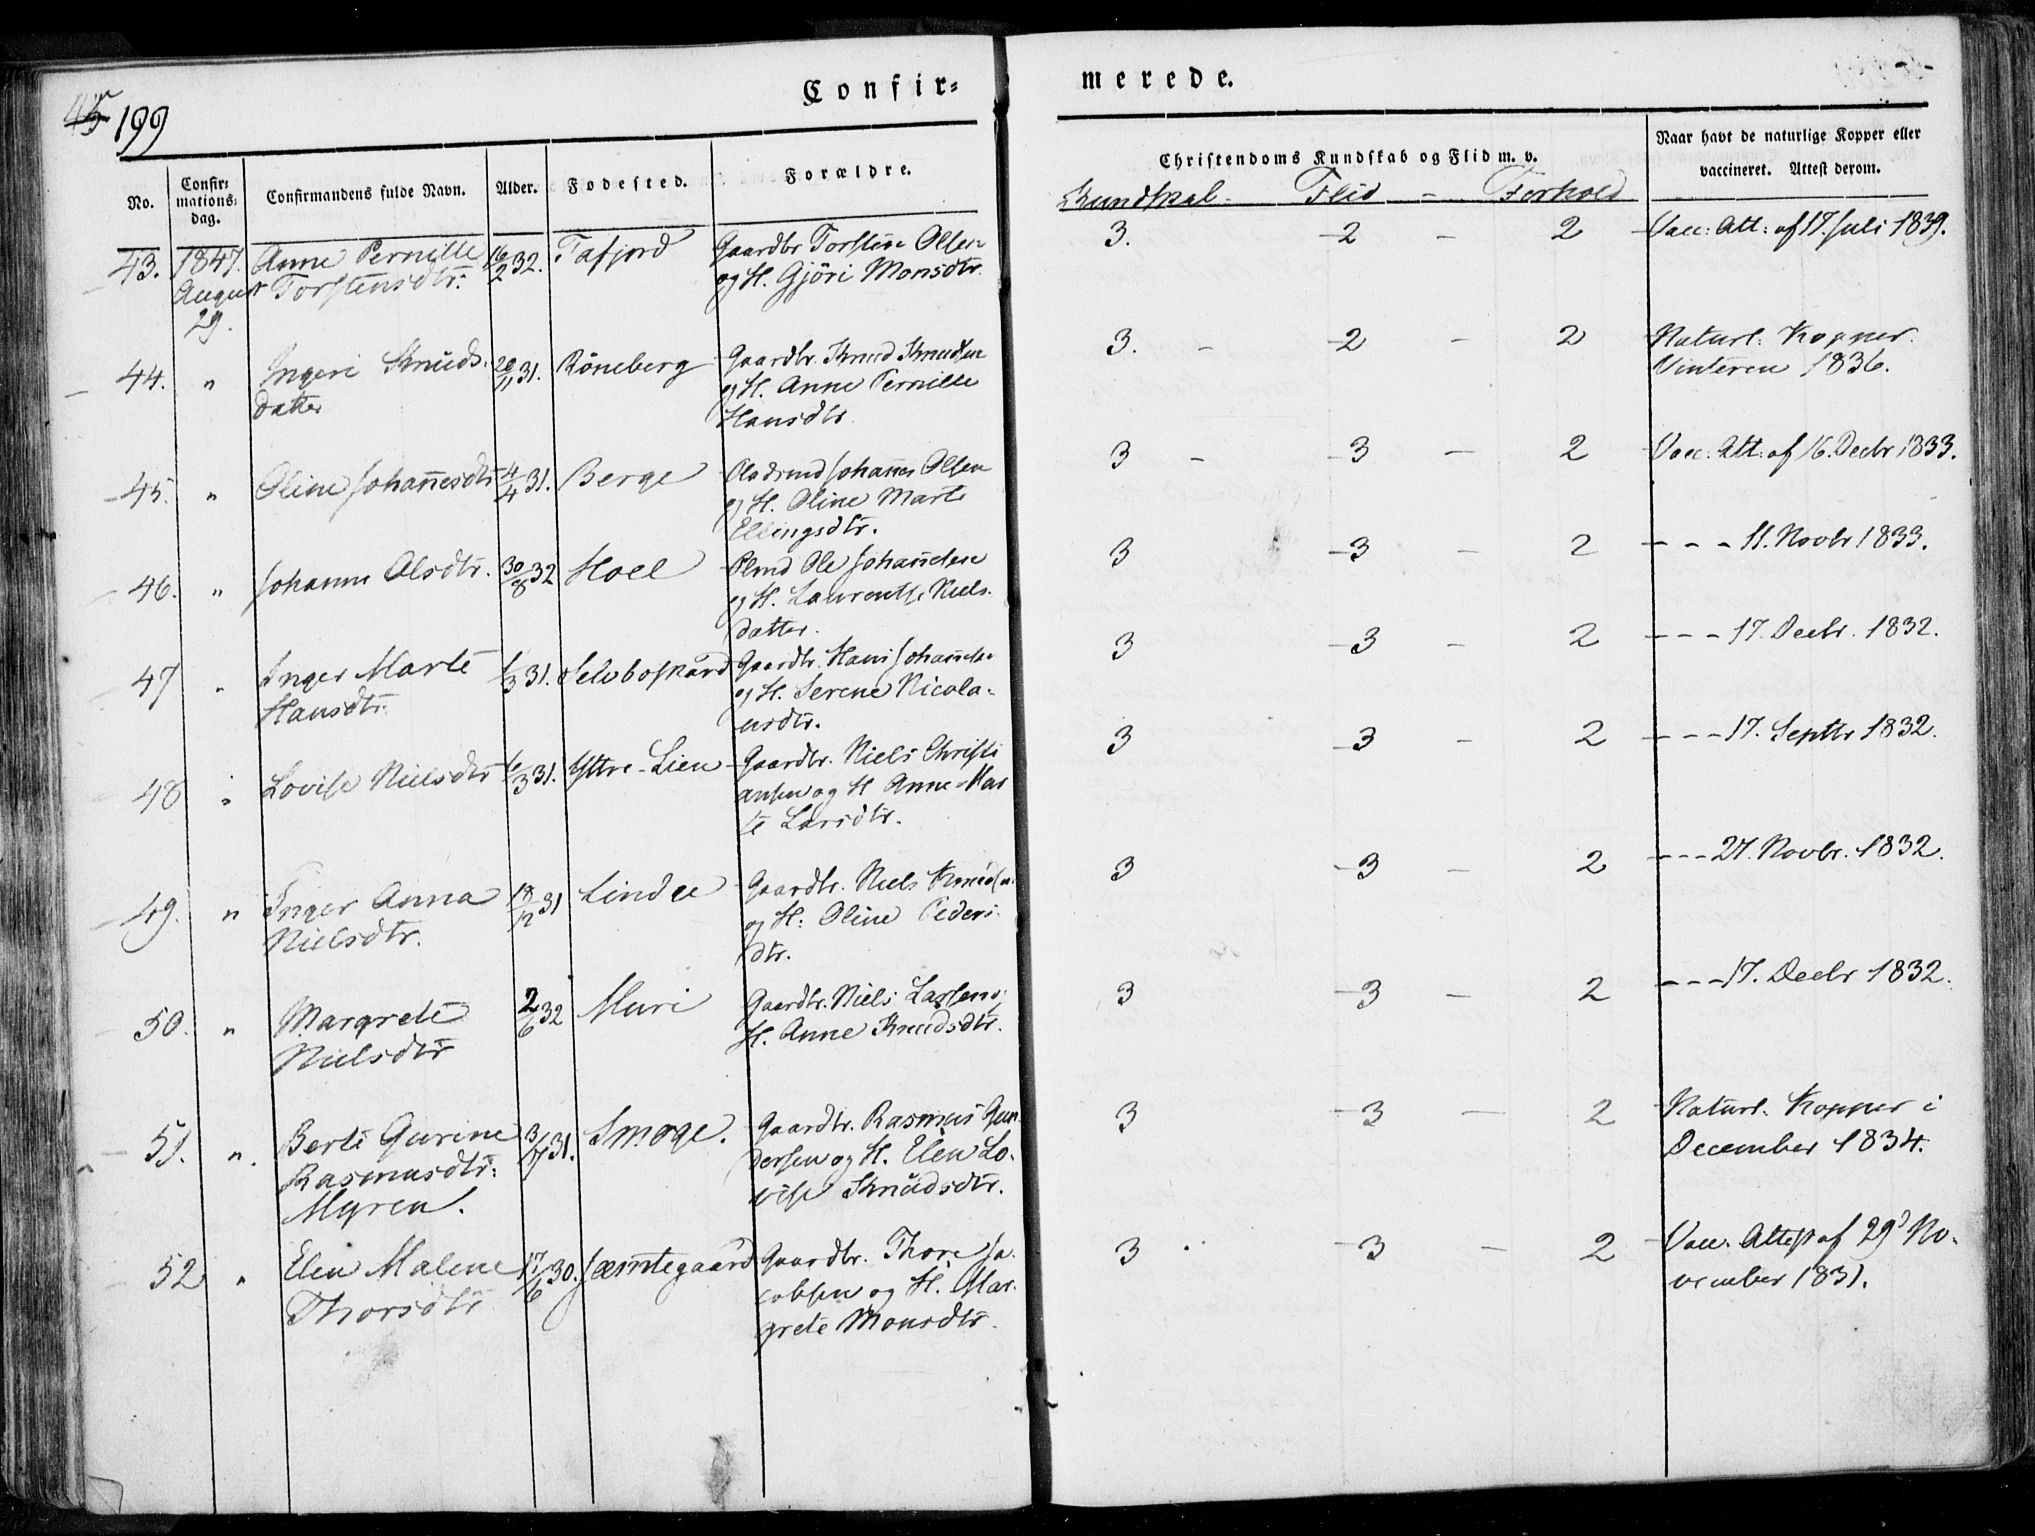 199
Confir=
merede.
No.
Confir=
mations=
dag.
Confirmandens fulde Navn.
Alder.
Fødested.
Forældre.
Christendoms Kundskab og Flid m. v.
Kundskab - Flid - Forhold
Naar havt de naturlige Kopper eller
vaccineret. Attest derom.
43. 1847. Anne Pernille 16/2 32. Tafjord Gaardbr Torsten Olsen 3. -2 - 2 Vacc: Att: af 17. Juli 1839.
August Torstensdtr. og H. Gjöri Monsdtr.
29.
44. " Ingeri Knuds- 20/11 31. Röneberg Gaardbr. Knud Knudsen 3. - -2 - 2 Naturl: Kopper.
datter og H. Anne Pernille Vinteren 1836.
Hansdtr
45. " Oline Johannesdtr 4/4 31. Berge Johannes Olsen 3 - -3 - 2 Vacc: Att: af 16. Decbr 1833.
og H. Oline Marte
Ellingsdtr.
46. " Johanne Olsdtr. 30/8 32 Hoel Ole Johannesen 3 -3 - 2 - - - 11. Novbr 1833.
og H. Laurentse Niels-
datter.
47 " Inger Marte /3 31. Selsbofkard Gaardbr. Hans Johannesen 3 -3 - 2 - - - 17. Decbr. 1832.
Hansdtr. og H. Serene Nicola-
usdtr.
48 " Lovise Nielsdtr /3 31. Yttre-Lien Gaardbr. Niels Christi 3 -3 - 2 - - - 17. Septbr 1832.
ansen og H Anne Mar
te Larsdtr.
49. " Inger Anna 18/12 31 Linde Gaardbr. Niels Knudsen 3 -3 - 2 - - - 27. Novbr. 1832.
Nielsdtr. og H: Oline Peders-
dtr.
50. " Margrete 2/6 32 Muri Gaardbr. Niels Larsen og 3 -3 - 2 - - - 17. Decbr 1832.
Nielsdtr H. Anne Knudsdtr.
51. " Berte Gurine 3/7 31. Smoge. Gaardbr. Rasmus Gun 3 -3 - 2 Naturl. Kopper i
Rasmusdtr. dersen og H. Elen Lo- December 1834.
Myren. vise Knudsdtr.
52 " Elen Malene 17/6 30. Jæmtegaard Gaardbr. Thore Ja- 3 -3 - 2 Vacc. Attest af 29d No-
Thorsdtr cobsen og H. Mar- vember 1831.
grete Monsdtr.